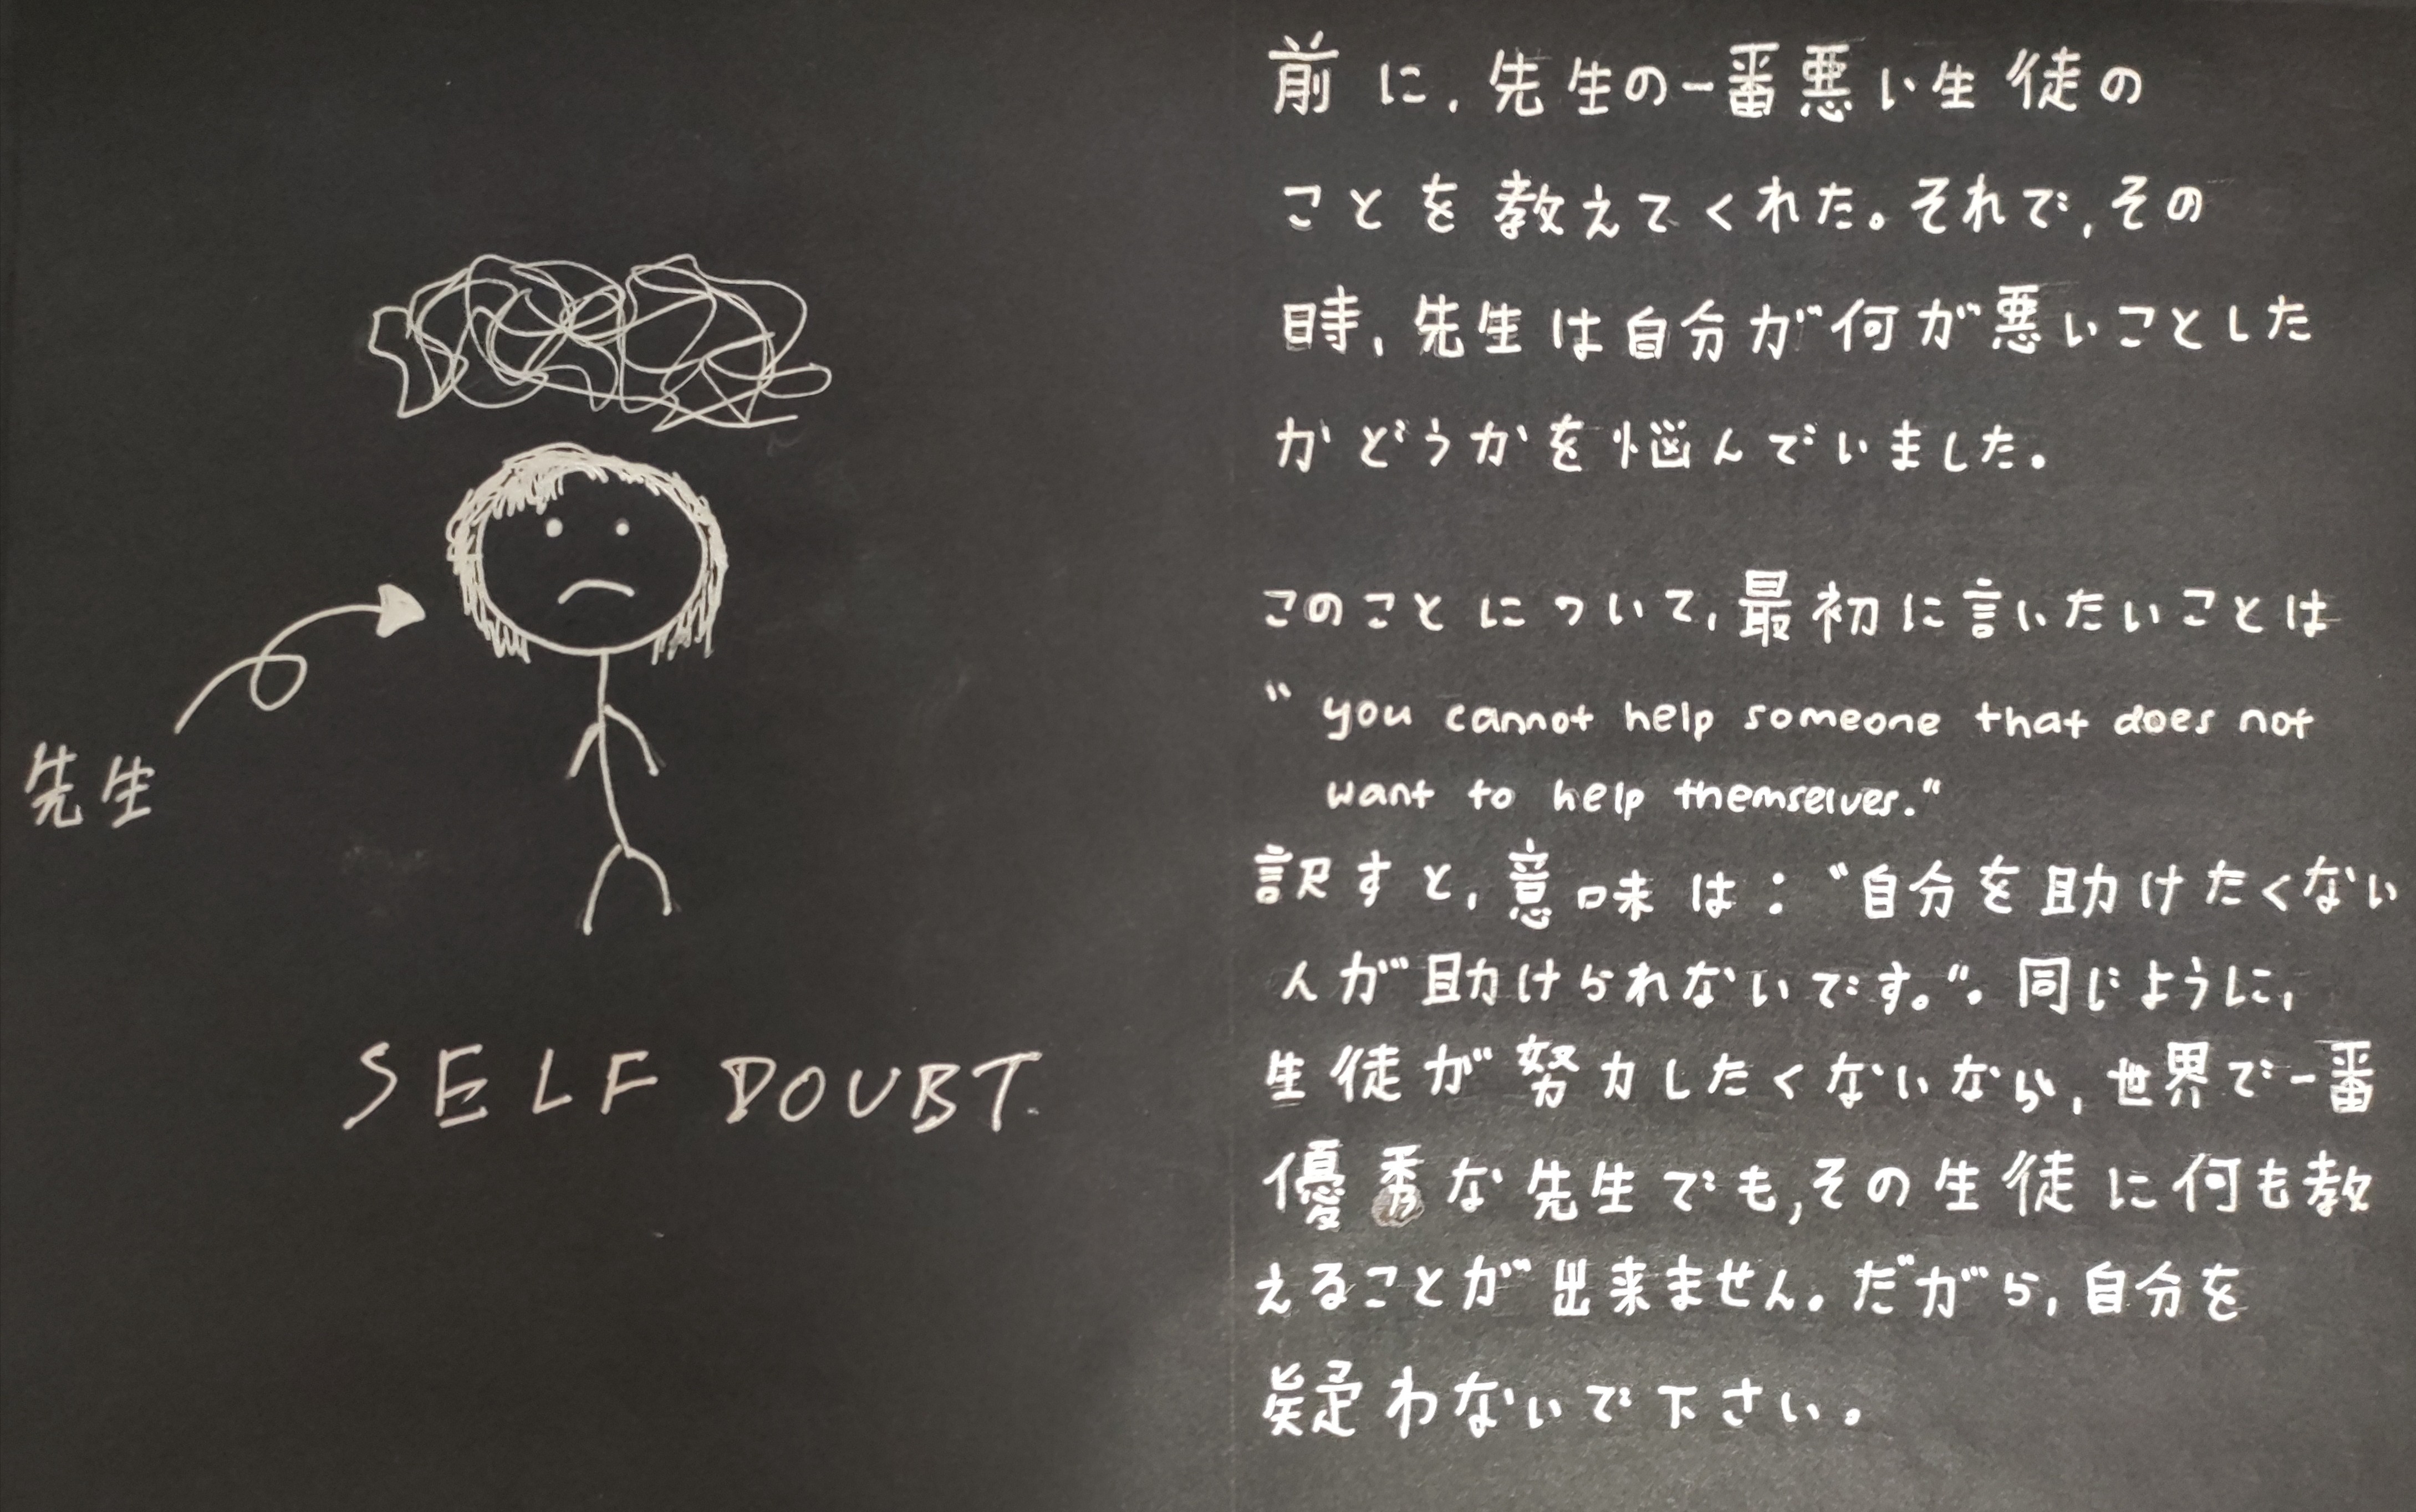 先生
SELF DOUBT.
前に,先生の一番悪い生徒の
ことを教えてくれた。それで,その
時,先生は自分が何が悪いことした
かどうかを悩んでいました。
このことについて,最初に言いたいことは
“you cannot help someone that does not
want to help themselves.”
訳すと,意味は:“自分を助けたくない
人が助けられないです。”。同じように,
生徒が努力したくないなら,世界で一番
優秀な先生でも,その生徒に何も教
えることが出来ません。だがら,自分を
疑わないで下さい。